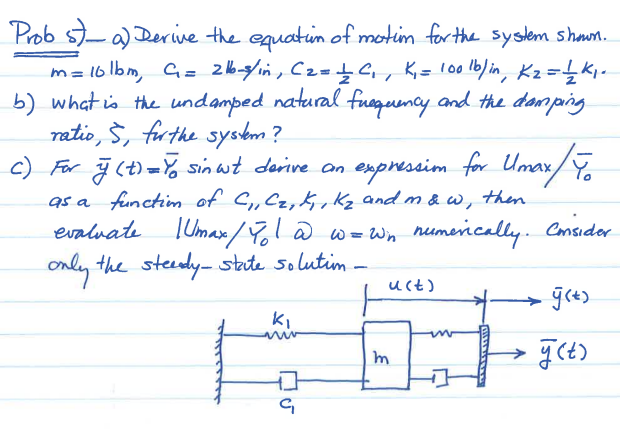 Prob 5)— a) Derive the equation of motion for the system shown.
m = 16 lbm, C₁ = 2 lb-s/in, C₂ = ½ C₁, K₁ = 100 lb/in, K₂ = ½ K₁.
b) what is the undamped natural frequency and the damping
ratio, ζ, for the system?
c) For ȳ(t) = Ȳ₀ sin ωt derive an expression for Umax/Ȳ₀
as a function of C₁, C₂, K₁, K₂ and m & ω, then
evaluate |Umax/Ȳ₀| @ ω = ωn numerically. Consider
only the steady-state solution –
u(t)
ȳ(t)
K₁
m
ȳ(t)
C₁